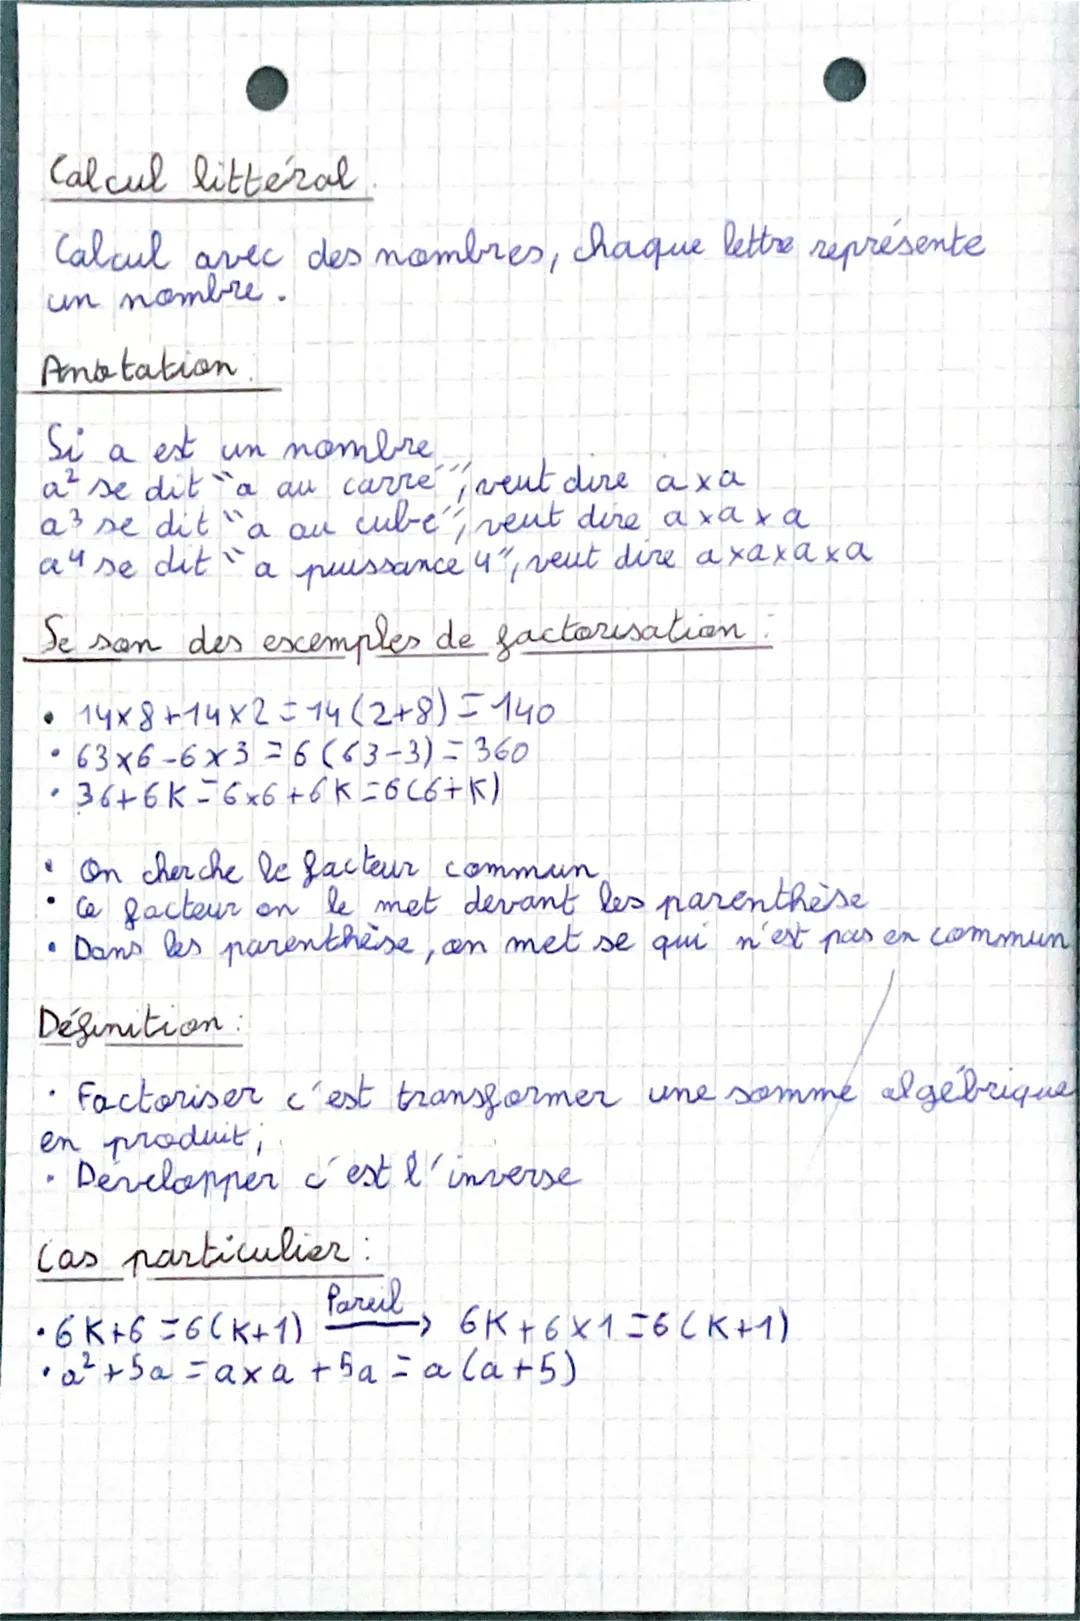 Calcul littéral.
Calcul avec des nombres, chaque lettre représente
un nombre.
Anotation :
Si a est un nombre
a² se dit "a au carré", veut dire a×a
a³ se dit "a au cube", veut dire a×a×a
a⁴ se dit "a puissance 4", veut dire a×a×a×a
Se son des exemples de factorisation :
• 14×8+14×2=14(2+8)=140
• 63×6-6×3=6(63-3)=360
• 36+6K=6×6+6K=6(6+K)
• On cherche le facteur commun
• Ce facteur on le met devant les parenthèse
• Dans les parenthèse, on met se qui n'est pas en commun
Définition :
• Factoriser c'est transformer une somme algébrique
en produit;
• Développer c'est l'inverse
Cas particulier :
• 6K+6=6(K+1) Pareil → 6K+6×1=6(K+1)
• a²+5a=a×a+5a=a(a+5)